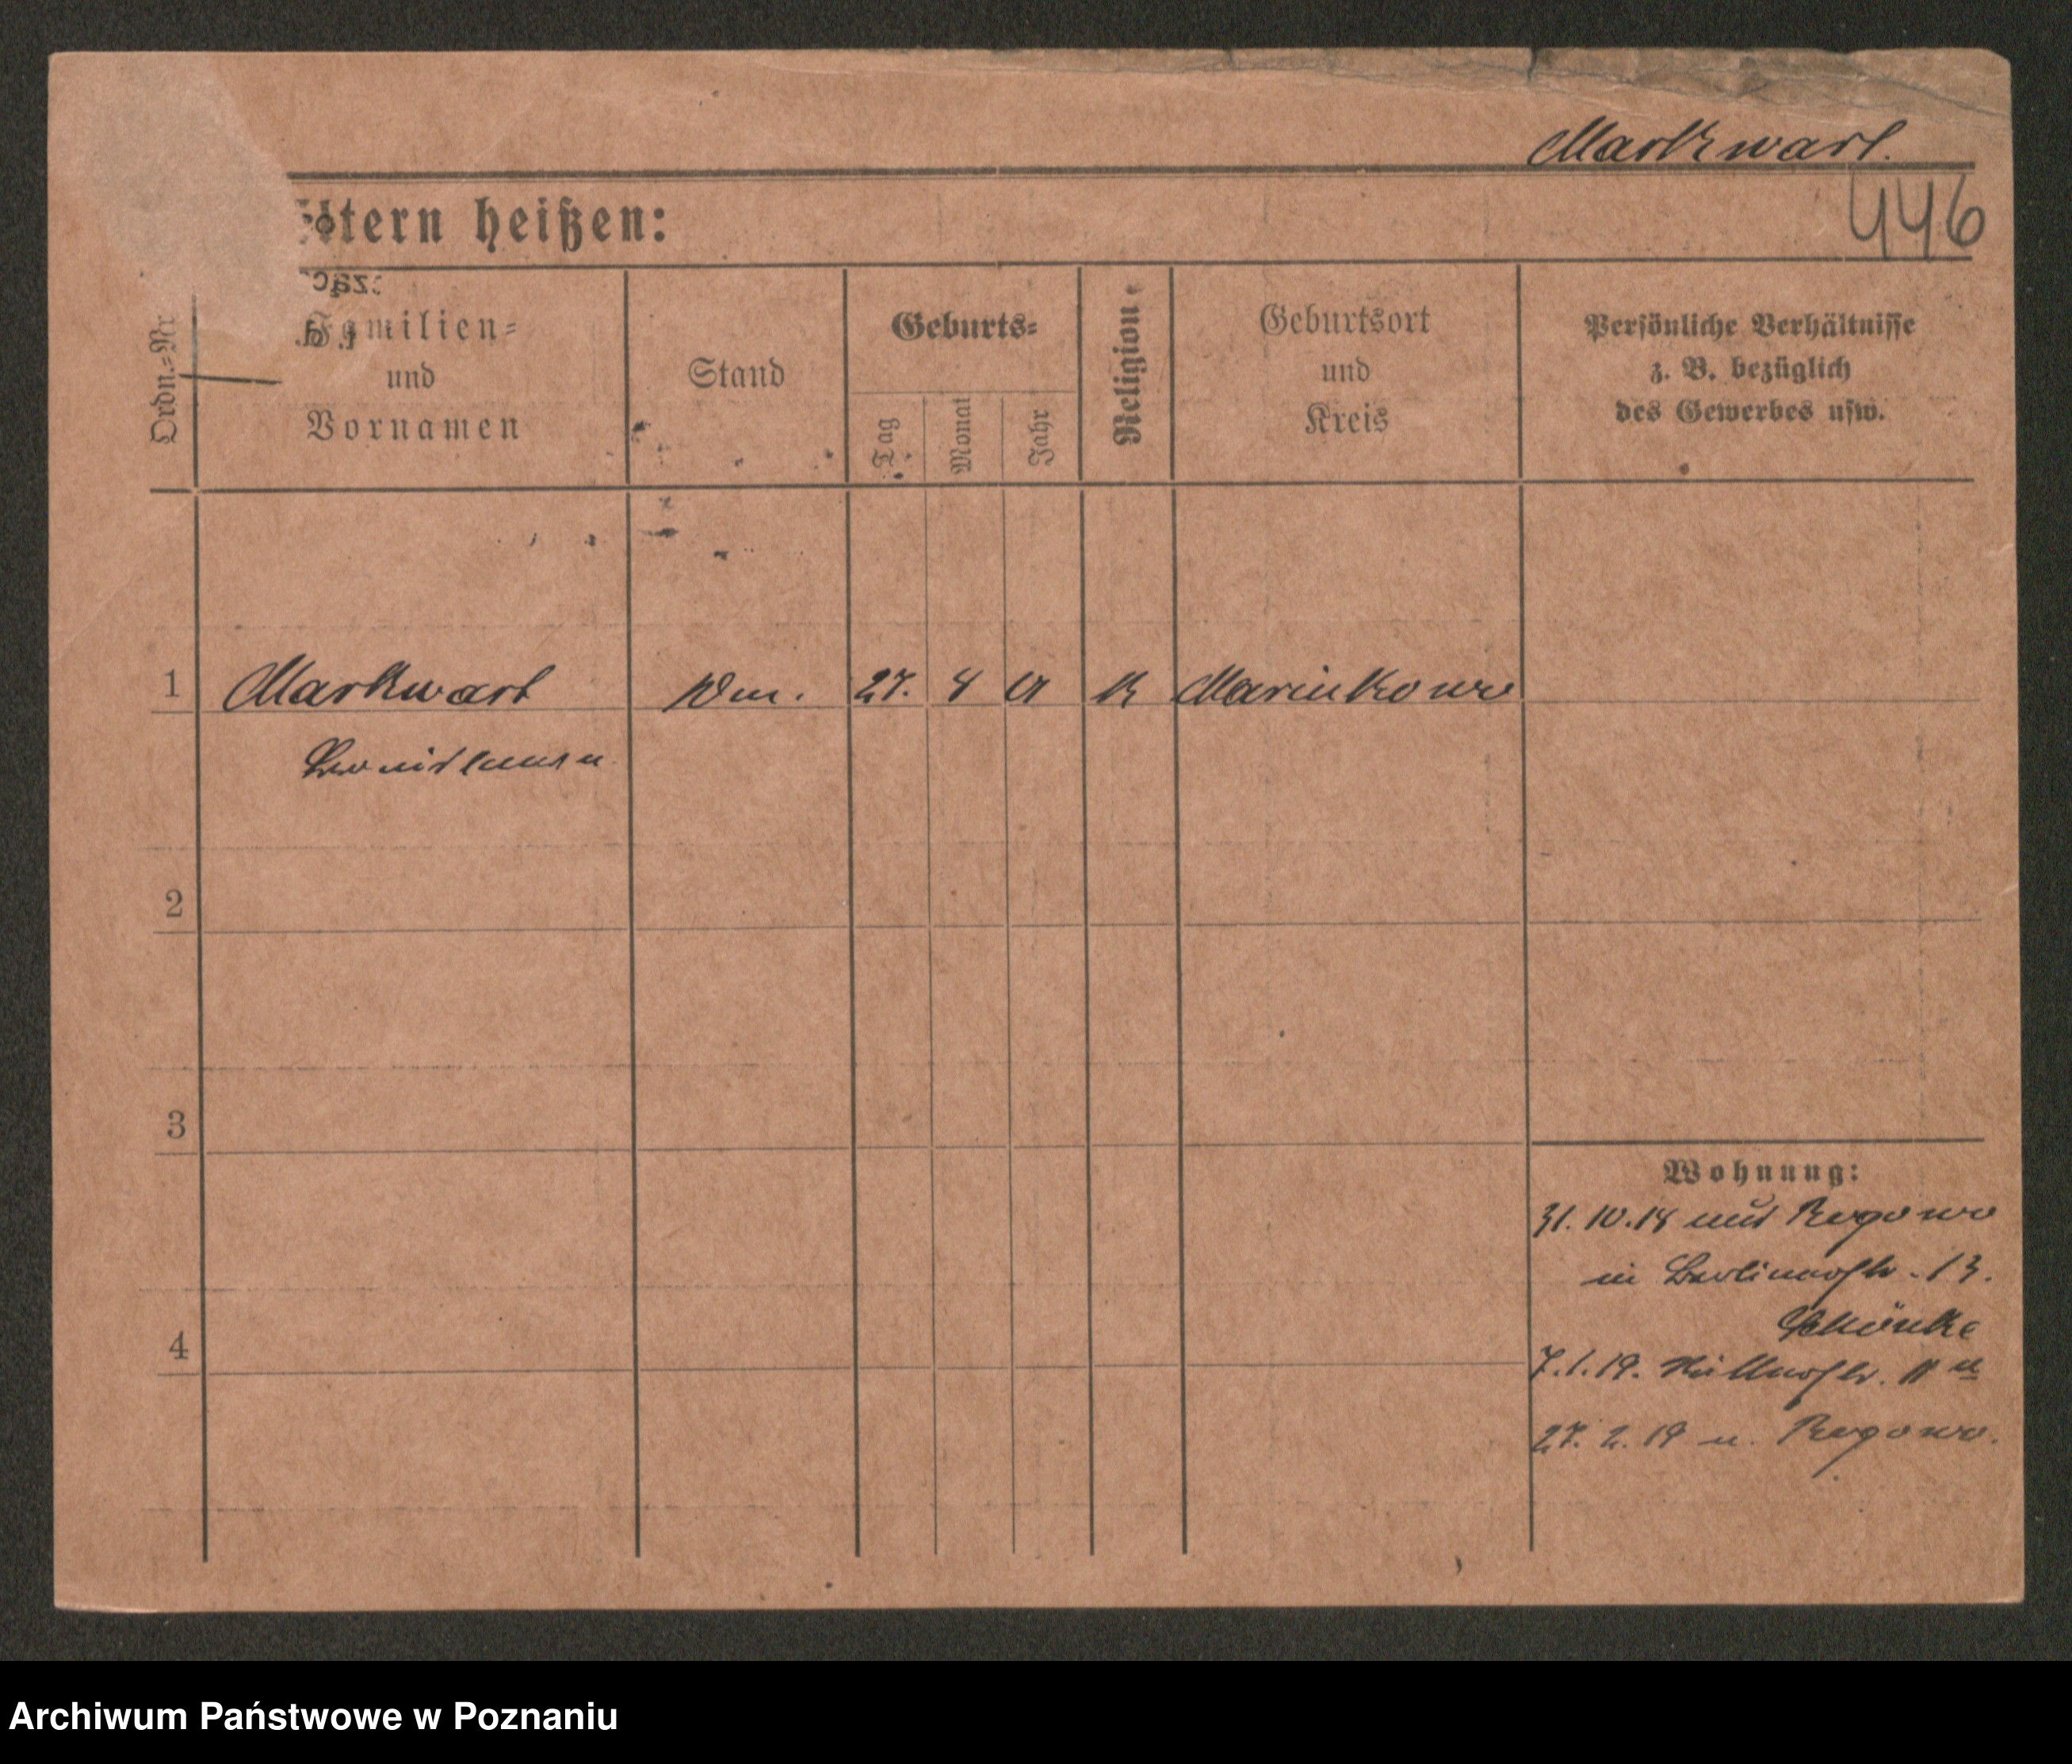 Markwart.
446
Eltern heißen:
Ordn.-Nr.
Familien-
und
Vornamen
Stand
Geburts-
Tag
Monat
Jahr
Religion
Geburtsort
und
Kreis
Persönliche Verhältnisse
z. B. bezüglich
des Gewerbes usw.
1 Markwart 27. 8 01 K Marinkowo
2
3
4
Wohnung:
31. 10. 18 aus Rogowo
in Berlinerstr. 13.
Schönke
7. 1. 19.
27. 2. 19 n. Rogowo.
Archiwum Państwowe w Poznaniu